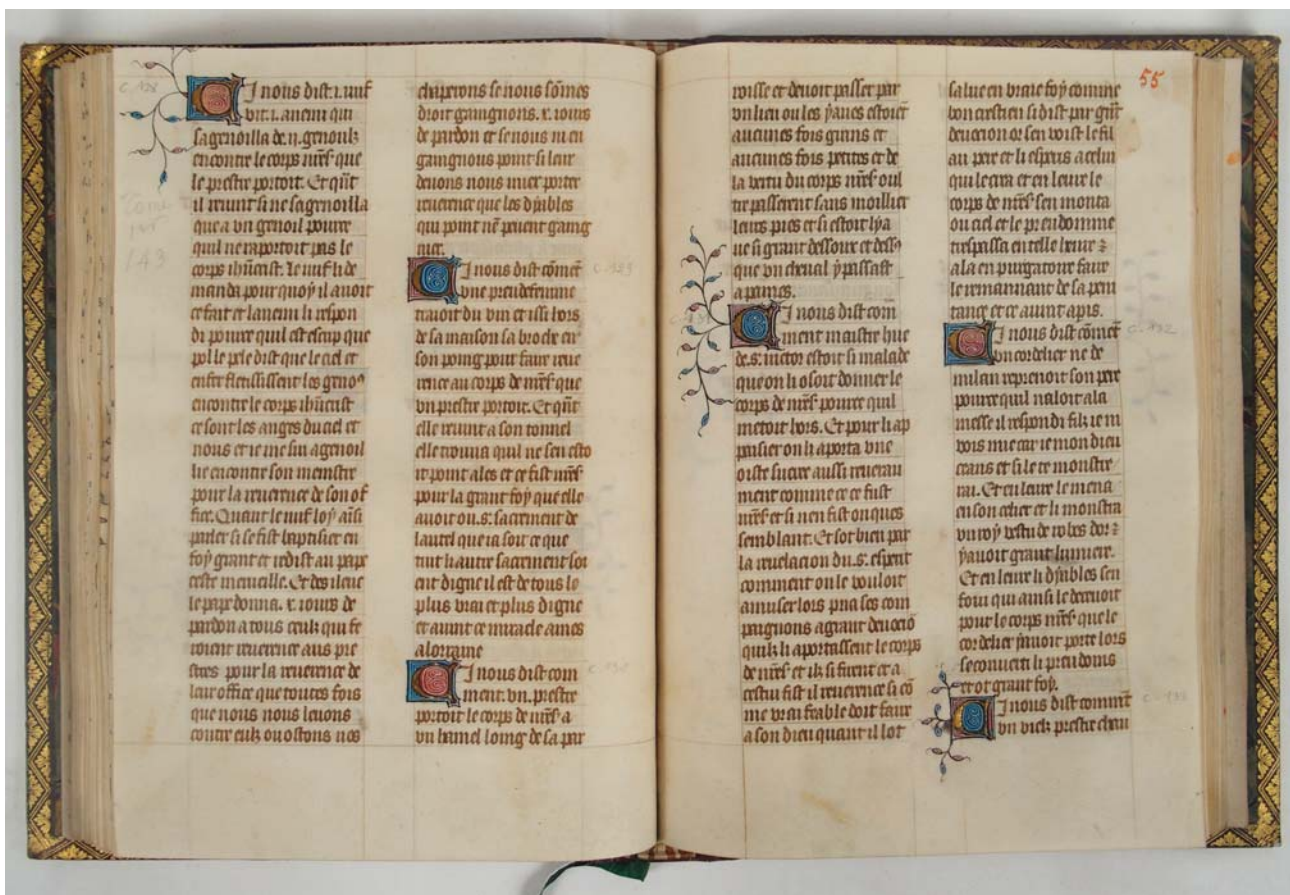 I nous dist .i. iuif
vit .i. anemi qui
sagenoilla de .ii. genoulz
encontre le corps nr̄es que
le prestre portoit. Et qñt
il reuint si ne sagenoilla
que a vn genoil pource
quil ne raportoit pas le
corps ihūcrist. Le iuif li de
manda pour quoy il auoit
ce fait et lanemi li respon
di pource quil est escup que
pol le pele dist que le ciel et
enfer flenissent les geno
encontre le corps ihūcrist
ce sont les anges du ciel et
nous et ie me sui agenoil
lie encontre son menistre
pour la reuerence de son of
fice. Quant le iuif loy aīsi
parler si se fist baptisier en
foy grant et redist au pape
ceste merueille. Et des ileuc
le pape donna .x. iours de
pardon a tous ceulz qui fe
roient reuerence aus pre
stres pour la reuerence de
leur office que toutes fois
que nous nous leuons
contre eulz ou ostons nos
chaperons se nous sōmes
droit gaaingnons .x. iours
de pardon et se nous ni en
gaingnons point si leur
deuons nous miex porter
reuerence que les dyables
qui point nē peuent gaaing
nier.
I nous dist cōmēt
vne preudefemme
traioit du vin et issi hors
de sa maison la broche en
son poing pour faire reue
rence au corps de nr̄es que
vn prestre portoit. Et qñt
elle reuint a son tonnel
elle trouua quil ne sen esto
it point ales et ce fist nr̄es
pour la grant foy que elle
auoit ou .s. sacrement de
lautel que ia soit ce que
tuit li autre sacrement soi
ent digne il est de tous le
plus vrai et plus digne
et auint ce miracle a mes
a lorraine
I nous dist com
ment .vn. prestre
portoit le corps de nr̄es a
vn hamel loing de sa par
roisse et deuoit passer par
vn lieu ou les yaues estoiēt
aucunes fois grans et
aucunes fois petites et de
la vertu du corps nr̄es oul
tre passerent sans moillier
leurs pies et si estoit lya
ue si grant dessoure et dess⁹
que vn cheual y passast
a paines.
I nous dist com
ment maistre hue
de .s. uictor estoit si malade
que on li osoit donner le
corps de nr̄es pource quil
metoit hors. Et pour li ap
paisier on li aporta vne
oiste sucree aussi reueran
ment comme ce ce fust
nr̄es et si nen fist onques
semblant. Et sot bien par
la reuelacion du .s. esperit
comment on le vouloit
amuser lors pria ses com
paignons a grant deuociō
quilz li aportassent le corps
de nr̄es et ilz si firent et a
cestui fist il reuerence si cō
me vrai feable doit faire
a son dieu quant il lot
55
salue en vraie foy comme
bon crestien si dist par grāt
deuocion or sen voist le fil
au pere et li esperis a celui
qui le crea et en leure le
corps de nr̄es sen monta
ou ciel et le preudomme
trespassa en telle heure ⁊
ala en purgatoire faire
le remannant de sa peni
tance et ce auint a pis.
I nous dist cōmēt
vn cordelier ne de
milan reprenoit son pere
pource quil naloit a la
messe il respondi filz ie ni
vois mie car ie mon dieu
ceans et si le te monstre
rai. Et en leure le mena
en son celier et li monstra
vn roy vestu de robes dor ⁊
y auoit grant lumiere.
Et en leure li dyables sen
foui qui ainsi le deceuoit
pour le corps nr̄es que le
cordelier y auoit porte lors
se conuerti li preudoms
et ot grant foy.
I nous dist comment
vn vielz prestre cheu